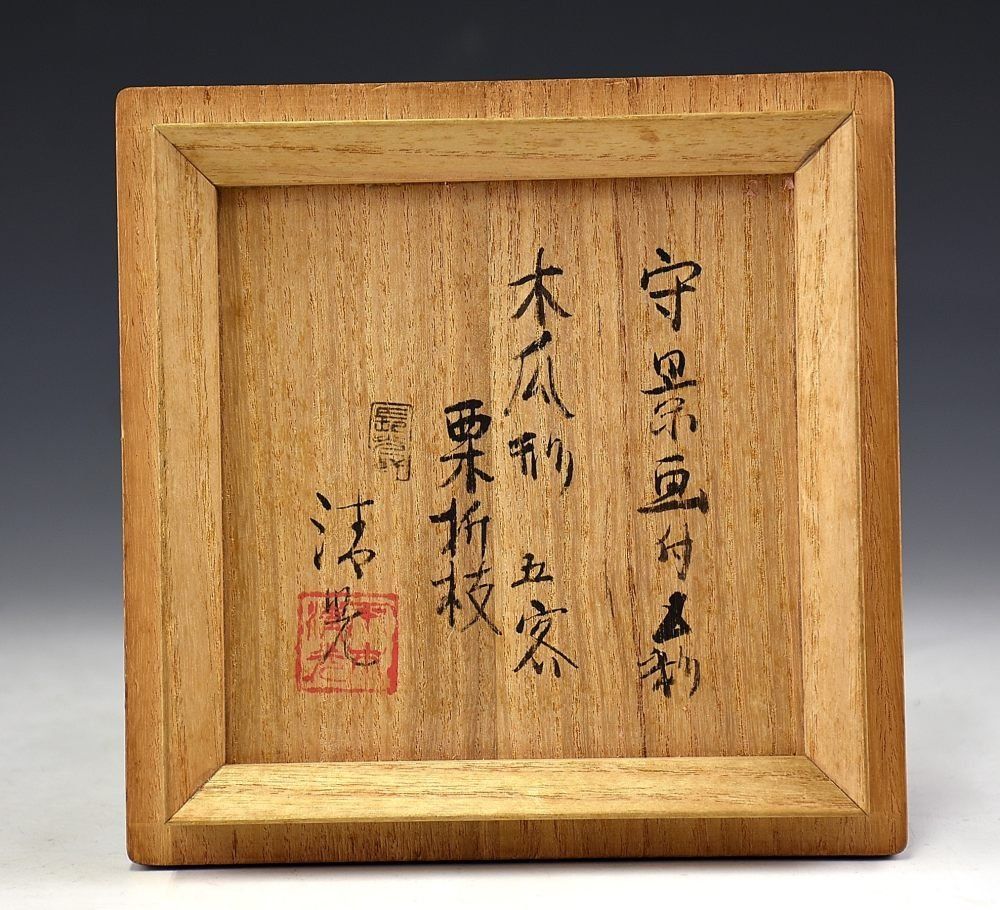 守景画付五彩
木瓜形 五客
栗折枝
清晃